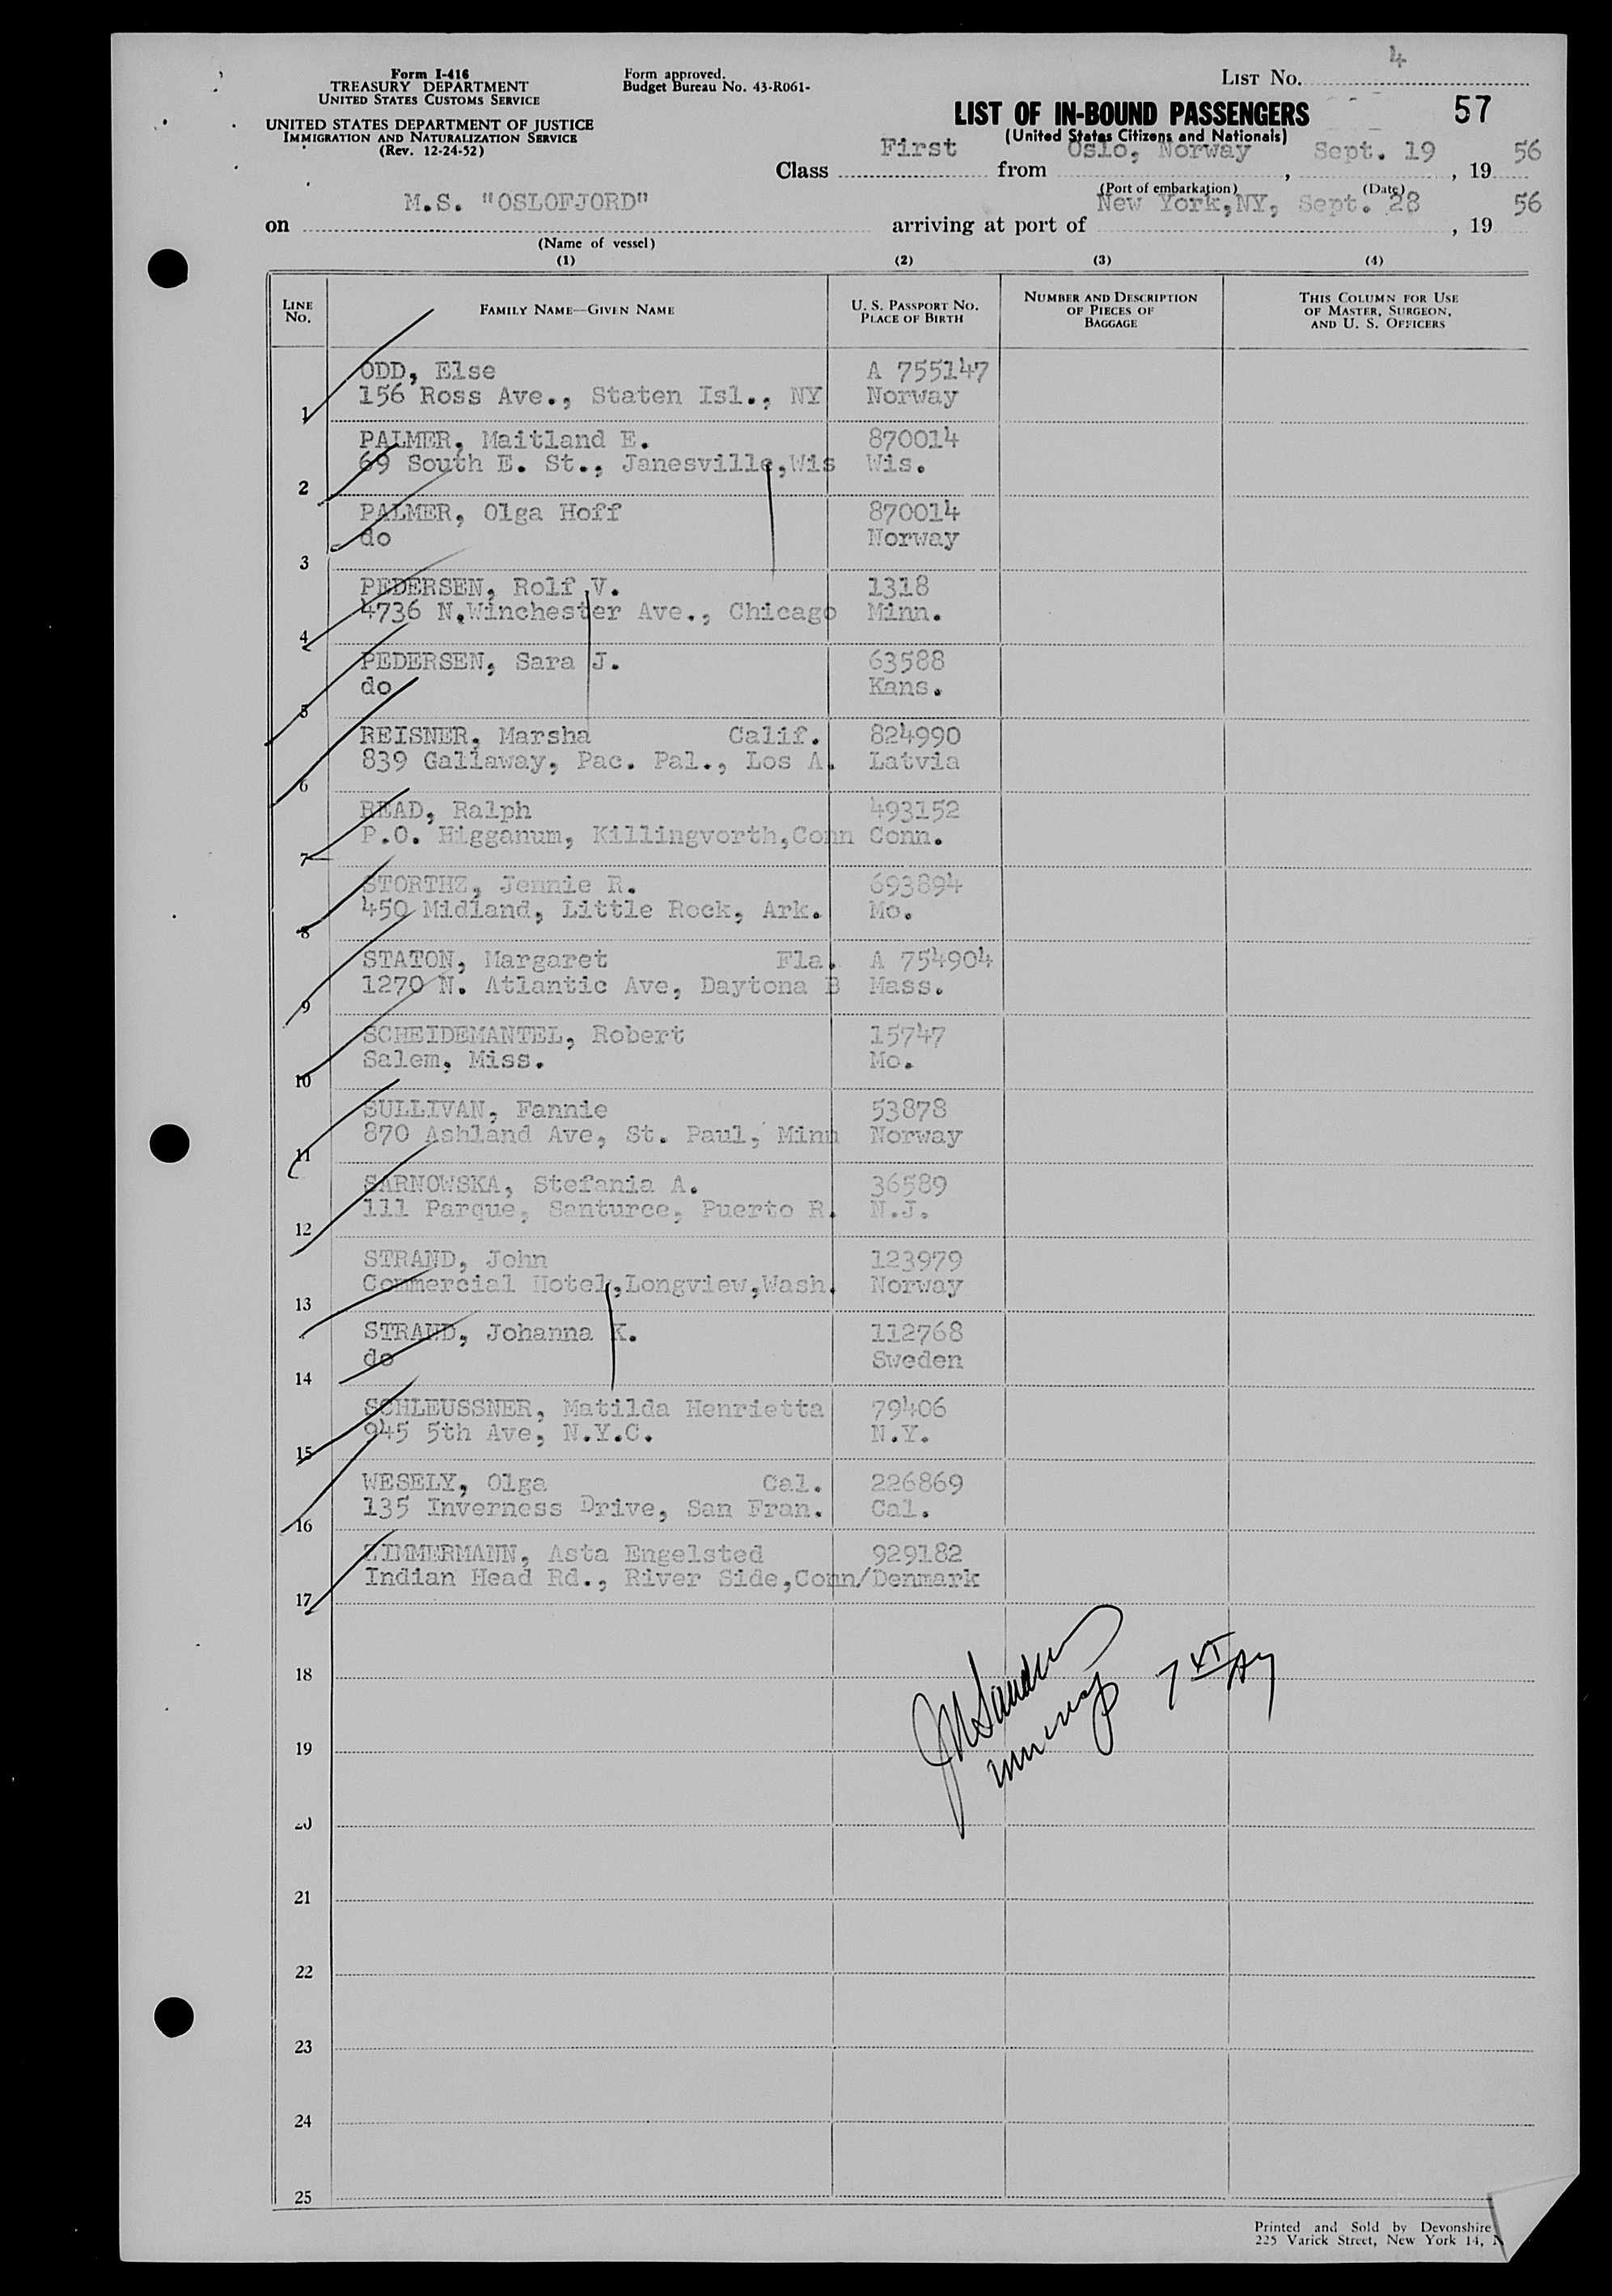 Form I-416
TREASURY DEPARTMENT
UNITED STATES CUSTOMS SERVICE
UNITED STATES DEPARTMENT OF JUSTICE
IMMIGRATION AND NATURALIZATION SERVICE
(Rev. 12-24-52)
Form approved.
Budget Bureau No. 43-R061-
LIST No. 4
LIST OF IN-BOUND PASSENGERS 57
(United States Citizens and Nationals)
Class First from Oslo, Norway, Sept. 19, 1956
(Port of embarkation) (Date)
on M.S. "OSLOFJORD" arriving at port of New York,NY, Sept. 28, 1956
(Name of vessel)
(1) (2) (3) (4)
LINE No. FAMILY NAME—GIVEN NAME U. S. PASSPORT NO. PLACE OF BIRTH NUMBER AND DESCRIPTION OF PIECES OF BAGGAGE THIS COLUMN FOR USE OF MASTER, SURGEON, AND U. S. OFFICERS
ODD, Else A 755147
1 156 Ross Ave., Staten Isl., NY Norway
PALMER, Maitland E. 870014
2 69 South E. St., Janesville,Wis Wis.
PALMER, Olga Hoff 870014
3 do Norway
PEDERSEN, Rolf V. 1318
4 4736 N.Winchester Ave., Chicago Minn.
PEDERSEN, Sara J. 63588
5 do Kans.
REISNER, Marsha Calif. 824990
6 839 Gallaway, Pac. Pal., Los A. Latvia
READ, Ralph 493152
7 P.O. Higganum, Killingvorth,Conn Conn.
STORTHZ, Jennie R. 693894
8 450 Midland, Little Rock, Ark. Mo.
STATON, Margaret Fla. A 754904
9 1270 N. Atlantic Ave, Daytona B Mass.
SCHEIDEMANTEL, Robert 15747
10 Salem, Miss. Mo.
SULLIVAN, Fannie 53878
11 870 Ashland Ave, St. Paul, Minn Norway
SARNOWSKA, Stefania A. 36589
12 111 Parque, Santurce, Puerto R. N.J.
STRAND, John 123979
13 Commercial Hotel,Longview,Wash. Norway
STRAND, Johanna K. 112768
14 do Sweden
SCHLEUSSNER, Matilda Henrietta 79406
15 945 5th Ave, N.Y.C. N.Y.
WESELY, Olga Cal. 226869
16 135 Inverness Drive, San Fran. Cal.
ZIMMERMANN, Asta Engelsted 929182
17 Indian Head Rd., River Side,Conn/Denmark
18
19
20
21
22
23
24
25
Printed and Sold by Devonshire
225 Varick Street, New York 14,